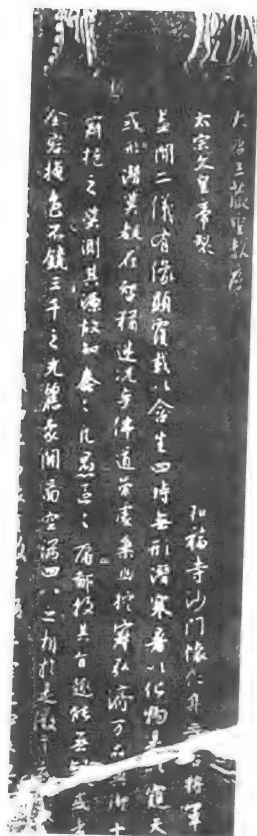 大唐三藏聖教序
太宗文皇帝製
福寺沙門懷仁集晉右將軍
蓋聞二儀有像顯覆載以含生四時無形潛寒暑以化物是以窺天
或形潛莫覩在智猶迷況乎佛道崇虛乘幽控寂弘濟萬品典御十
寂挹之莫測其源故知蠢蠢凡愚區區庸鄙投其旨趣能無疑惑者
金容掩色不鏡三千之光麗象開圖空端四八之相於是微言